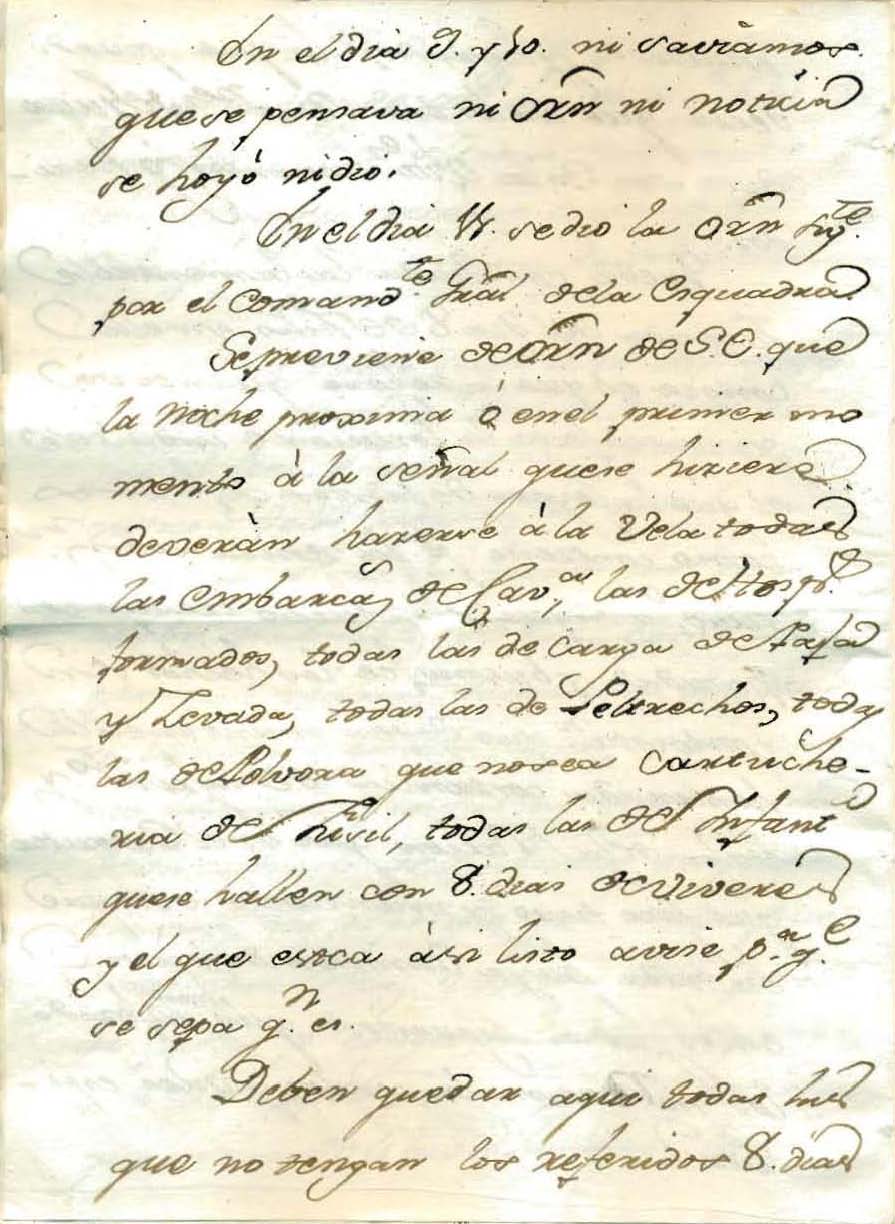 En el dia 9. y 10. ni saviamos
que se pensava ni Orñ ni noticia
se hoyó ni dio.
En el dia 11. se dio la Orñ sigte.
por el Comandte. Gral de la Esquadra
Se previene de Orñ de S.E. que
la noche proxima ó en el primer mo
mento à la señal que se hiziere
deveràn hazerse à la Vela todas
las embarcas de Cavas, las de Hospes.
formados, todas las de carga de Paja
y Zevada, todas las de Peltrechos, todas
las de Polvora que no sea Cartuche-
ria de Fusil, todas las de Infanta
que se hallen con 8. dias de Viveres
y el que esta àsi listo avise pa. qe.
se sepa qn. es.
Deben quedar aqui todas las
que no tengan los referidos 8. dias